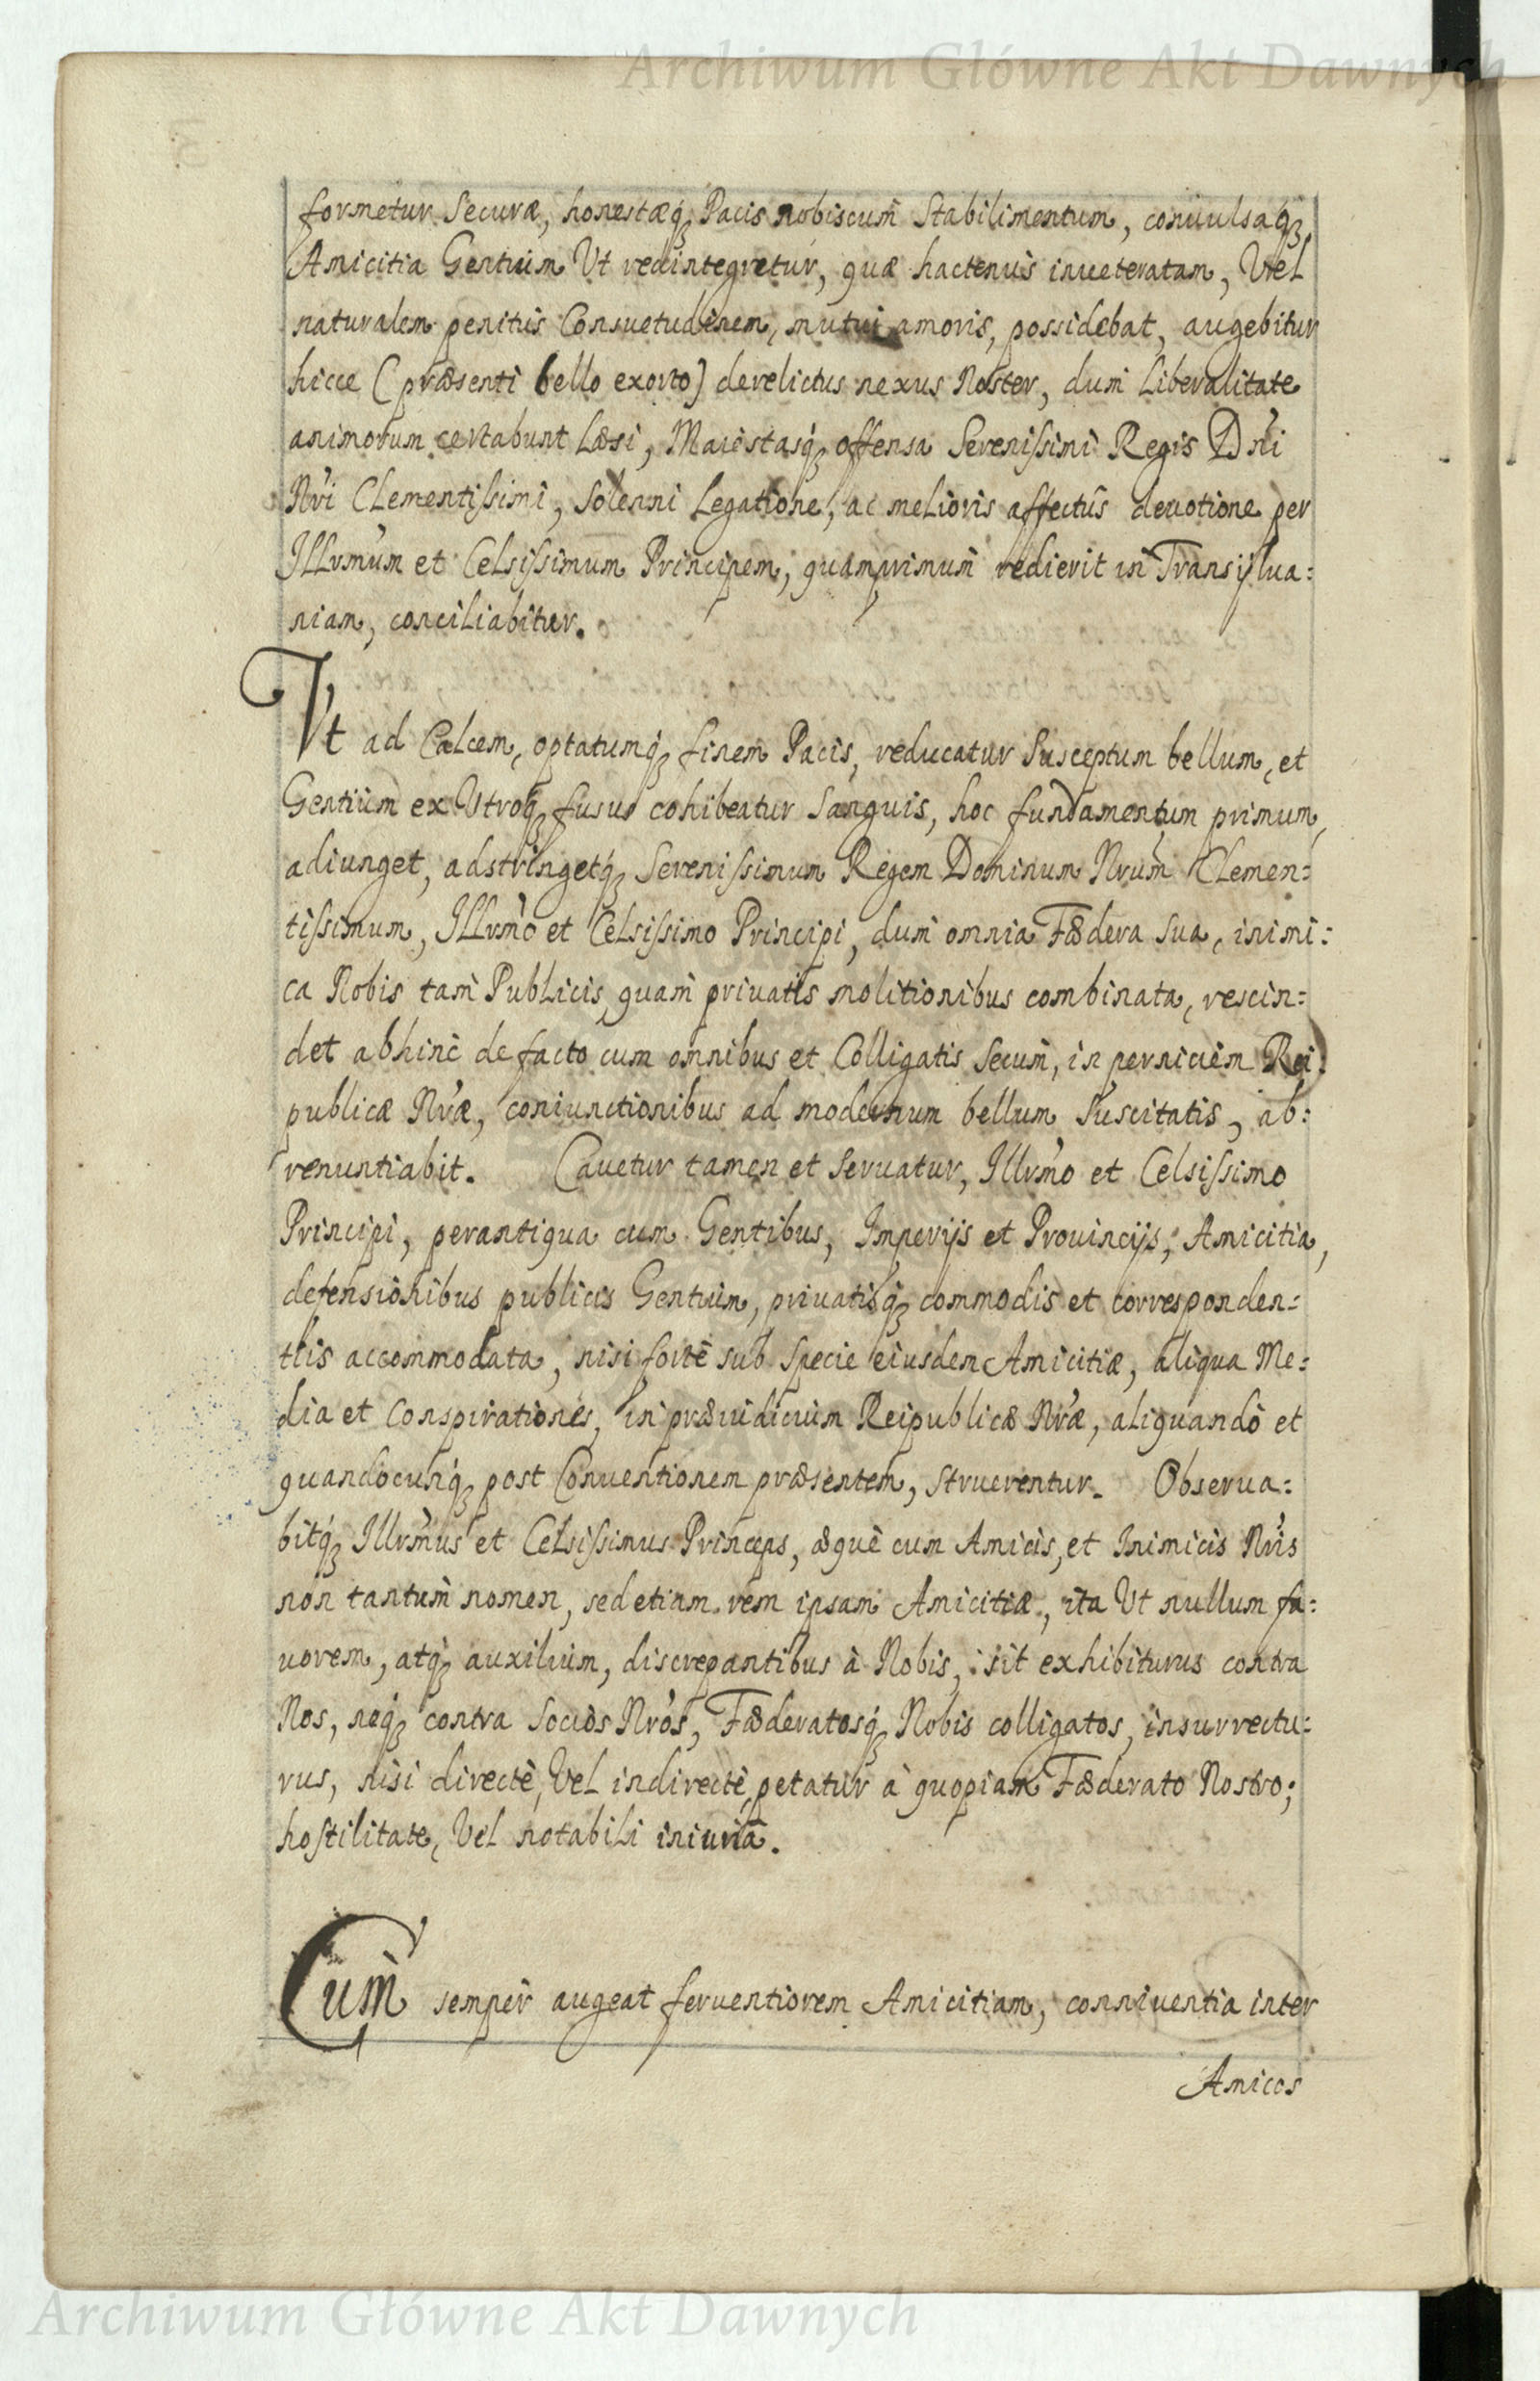 Archiwum Główne Akt Dawnych
formetur Securæ, honestæq́ꝫ Pacis nobiscum̀ Stabilimentum, conuulsaq́ꝫ
Amicitia Gentium Vt redintegretur, quæ hactenus inueteratam, Vel
naturalem penitus Consuetudinem, mutui amoris, possidebat, augebitur
hicce (præsenti bello exorto) derelictus nexus Noster, dum Liberalitate
animorum certabunt Læsi, Maiestasq́ꝫ offensa Serenissimi Regis Dn̕i
Nr̕i Clementissimi, Solenni Legatione, ac melioris affectûs deuotione per
Illrm̕um et Celsissimum Principem, quamprimum̀ redierit in Transylua:
niam, conciliabitur.
Vt ad Calcem, optatumq́ꝫ finem Pacis, reducatur Susceptum bellum, et
Gentium ex Vtroq́ꝫ fusus cohibeatur Sanguis, hoc fundamentum primum,
adiunget, adstringetq́ꝫ Serenissimum Regem Dominum Nr̕um Clemen:
tissimum, Illrm̕o et Celsissimo Principi, dum omnia Fœdera sua, inimi:
ca Nobis tam̀ Publicis quam̀ priuatis molitionibus combinata, rescin:
det abhinc de facto cum omnibus et Colligatis Secum̀, in perniciem Rei:
publicæ Nr̕æ, coniunctionibus ad modernum bellum Suscitatis, ab:
renuntiabit. Cauetur tamen et Seruatur, Illrm̕o et Celsissimo
Principi, perantiqua cum Gentibus, Imperijs et Prouincijs, Amicitia,
defensionibus publicis Gentium, priuatisq́ꝫ commodis et corresponden:
tiis accommodata, nisi fortè sub Specie eiusdem Amicitiæ, aliqua Me:
dia et Conspirationes, in præiudicium Reipublicæ Nr̕æ, aliquandò et
quandocunq́ꝫ post Conuentionem præsentem, struerentur. Obserua:
bitq́ꝫ Illrm̕us et Celsissimus Princeps, æquè cum Amicis, et Inimicis Nr̕is
non tantum̀ nomen, sed etiam rem ipsam Amicitiæ, ita Vt nullum fa:
uorem, atq́ꝫ auxilium, discrepantibus à Nobis, sit exhibiturus contra
Nos, neq́ꝫ contra Socios Nr̕os, Fœderatosq́ꝫ Nobis colligatos, insurrectu:
rus, nisi directè, Vel indirectè, petatur à quopiam Fœderato Nostro;
hostilitate, Vel notabili iniuriâ.
Cum̀ semper augeat feruentiorem Amicitiam, conniuentia inter
Amicos
Archiwum Główne Akt Dawnych